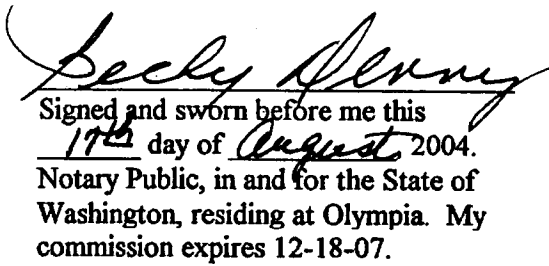 Becky Denny
Signed and sworn before me this
17th day of August 2004.
Notary Public, in and for the State of
Washington, residing at Olympia. My
commission expires 12-18-07.